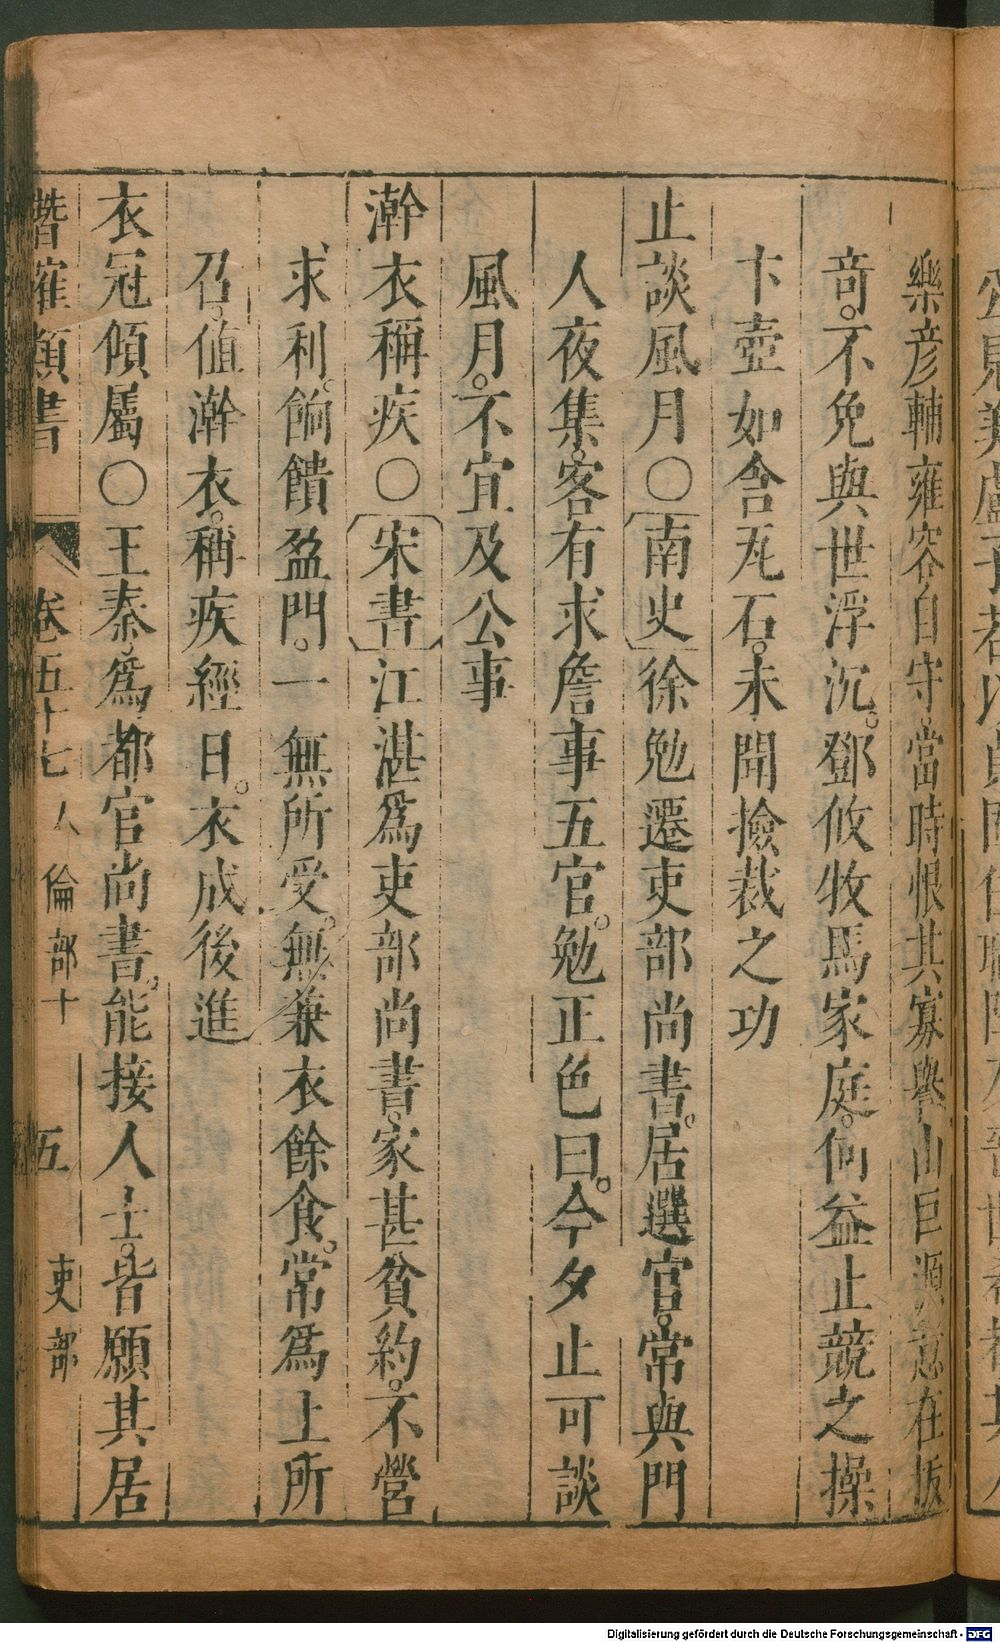 樂彦輔雍容自守。當時恨其寡譽。山巨源意在拔
竒。不免與世浮沉。鄧攸牧馬家庭。何益止競之操
卞壺如含瓦石。未聞撿裁之功
止談風月〇[南史]徐勉遷吏部尚書。居選官。常與門
人夜集。客有求詹事五官。勉正色曰。今夕止可談
風月。不宜及公事
澣衣稱疾〇[宋書]江湛爲吏部尚書。家甚貧約。不營
求利。餉饋盈門。一無所受。無兼衣餘食。常爲上所
召。值澣衣。稱疾經日。衣成後進
衣冠傾屬〇王泰。爲都官尚書。能接人士。皆願其居
潛確類書 卷五十七 人倫部十 五 吏部
Digitalisierung gefördert durch die Deutsche Forschungsgemeinschaft - DFG